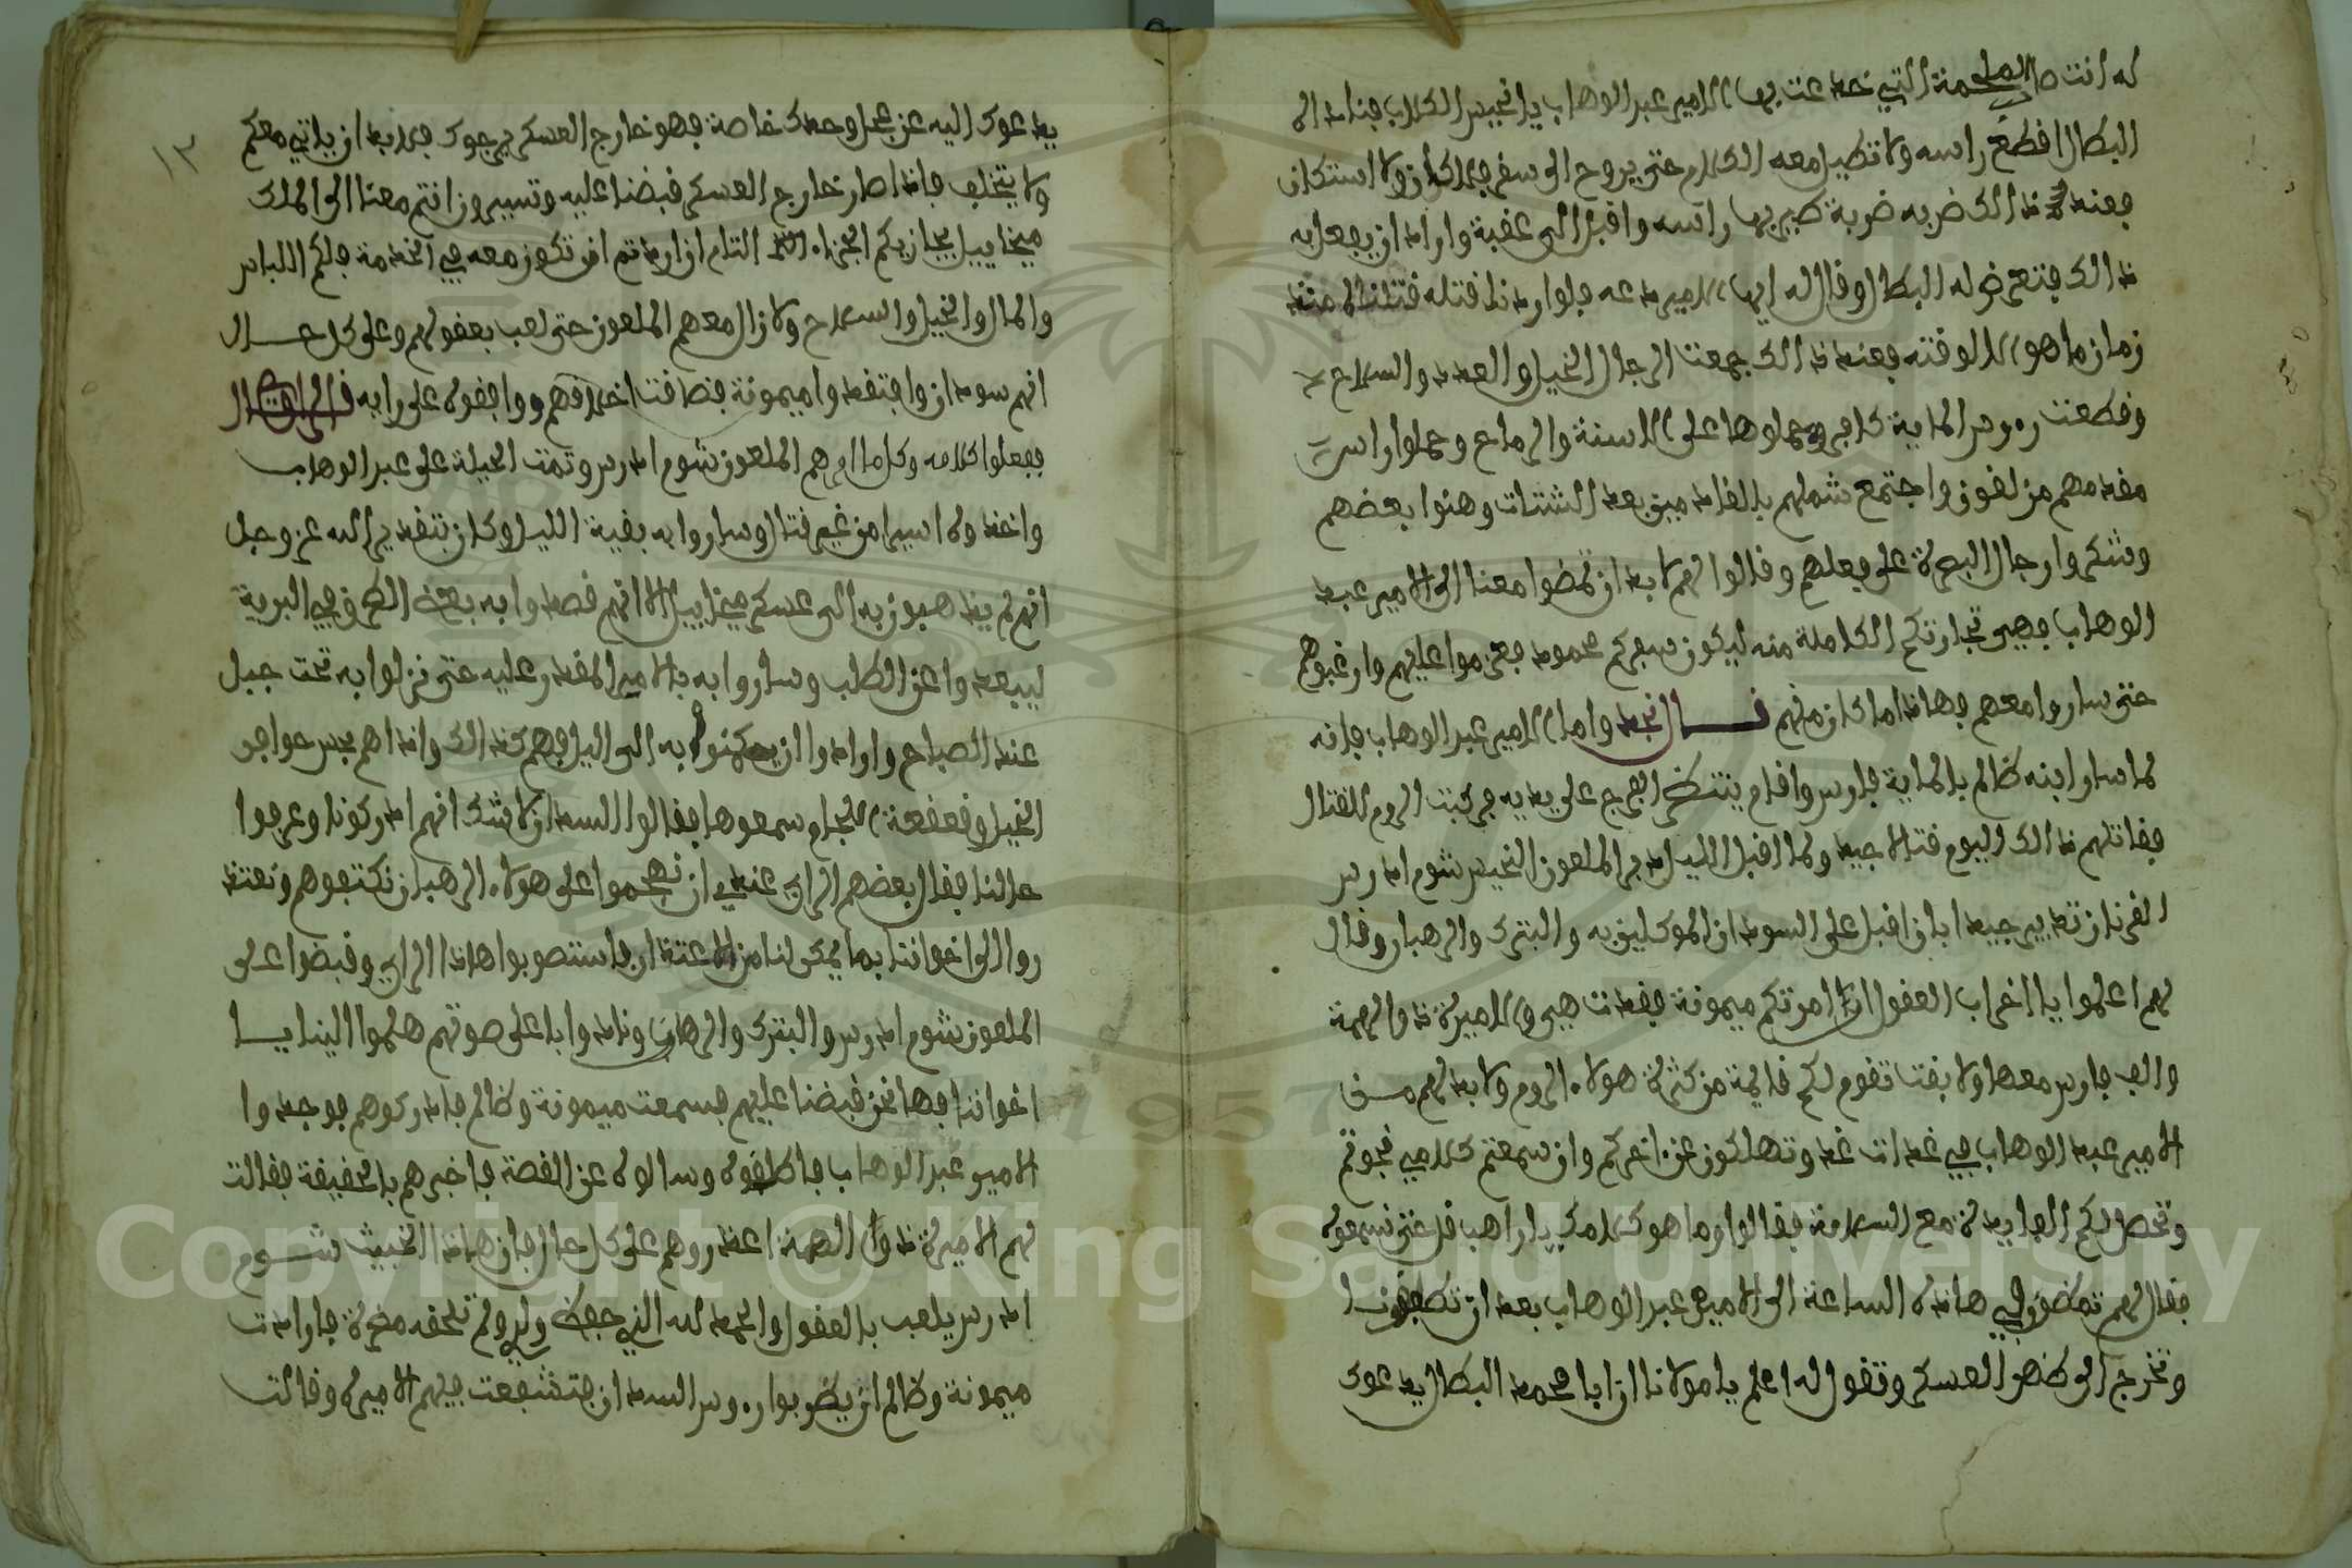 له انت صا الملحمة التي خدعت بها الامير عبد الوهاب يا نحيس الكلاب فناد اله
البطال اقطع راسه ولا تطيل معه الكلام حتى يروح الى سقر فلا كان ولا استكان
فعند ذالك ضربه ضربة طير بها راسه واقبل الى عقبة واراد ان يفعل به
ذالك فتعرض له البطال وقال له ايها الامير دعه فلو اردنا قتله قتلناه منذ
زمان ما هو الا لوقته فعند ذالك جمعت الرجال الخيل والعدد والسلاح
وقطعت روس الماية كافر وحملوها على الاسنة والرماح وحملوا راس
مقدمهم مزلقون واجتمع شملهم بالقادمين بعد الشتات وهنوا بعضهم
وشكروا رجال البصرة على فعلهم وقالوا لهم لا بد ان تمضوا معنا الى الامير عبد
الوهاب فهي تجارتكم الكاملة منه ليكون سعيكم محمود فعزموا عليهم وارغبوهم
حتى ساروا معهم فهاذا ما كان منهم قال نجد واما الامير عبد الوهاب فانه
لما سار ابنه ظالم بالماية فارس واقام ينتظر الفرج على يديه فركبت الروم للقتال
فقاتلهم ذالك اليوم قتالا جيد ولما اقبل الليل دبر الملعون النحيس شوم ادرس
القرنان تدبير جيد ابان اقبل على السودان الموكلين به والبترك والرهبان وقال
لهم اعلموا يا اخراب العقول ان امرتكم ميمونة فقدت هي والاميرة ذو الهمة
والف فارس معها ولا بقت تقوم لكم قايمة من كثرة هولاء الروم ولا بد لهم من
الامير عبد الوهاب في غدات غد وتهلكون عن اخركم وان سمعتم كلامي نجوتم
وتحصل لكم الفايدة مع السلامة فقالوا وما هو كلامك يا راهب قل حتى نسمعوه
فقال لهم تمضون في هاذه الساعة الى الامير عبد الوهاب بعد ان تطلقونا
وتخرج الى ظهر العسكر وتقول له اعلم يا مولانا ان ابا محمد البطال يدعوك
١٣
يدعوك اليه عن عجل وحدك خاصة فهو خارج العسكر يرجوك فلا بد ان ياتي معكم
ولا يتخلف فاذا صار خارج العسكر قبضنا عليه وتسيرون انتم معنا الى الملك
ميخاييل يجازيكم الجزاء التام ان اردتم ان تكون معه في الخدمة فلكم اللباس
والمال والخيل والسلاح ولا زال معهم الملعون حتى لعب بعقولهم وعلى كل حال
انهم سودان وافتقدوا ميمونة فضاقت اخلاقهم ووافقوه على رايه قال الراوي
ففعلوا كلامه وكلما امرهم الملعون شوم ادرس وتمت الحيلة على عبد الوهاب
واخذوه اسيرا من غير قتال وساروا به بقية الليل وكان بتقدير الله عز وجل
انهم لم يذهبون به الى عسكر ميخاييل الا انهم قصدوا به بعض الطرق في البرية
ليبعدوا عن الطلب وساروا به بالامير المقدر عليه حتى نزلوا به تحت جبل
عند الصباح وارادوا ان يمكنوا به الى الليل فهم كذالك واذا هم بحس حوافر
الخيل وقعقعة اللجام سمعوها فقالوا السودان لا شك انهم ادركونا وعرفوا
حالنا فقال بعضهم الراي عندي ان نهجموا على هولاء الرهبان نكتفوهم ونعتذ
روا الى اخواننا بما يمكن لنا من الاعتذار فاستصوبوا هاذا الراي وقبضوا على
الملعون شوم ادرس والبترك والرهبان ونادوا باعلى صوتهم هلموا الينا يا
اخواننا فها نحن قبضنا عليهم فسمعت ميمونة وظالم فادركوهم فوجدوا
الامير عبد الوهاب فاطلقوه وسالوه عن القصة فاخبرهم بالحقيقة فقالت
لهم الاميرة ذو الهمة اعذروهم على كل حال فان هاذا الخبيث شوم
ادرس يلعب بالعقول والحمد لله الذي حفظ ولدي ولم تلحقه مضرة فارادت
ميمونة وظالم ان يضربوا روس السودان فتشفعت فيهم الاميرة وقالت
Copyright © King Saud University
1957